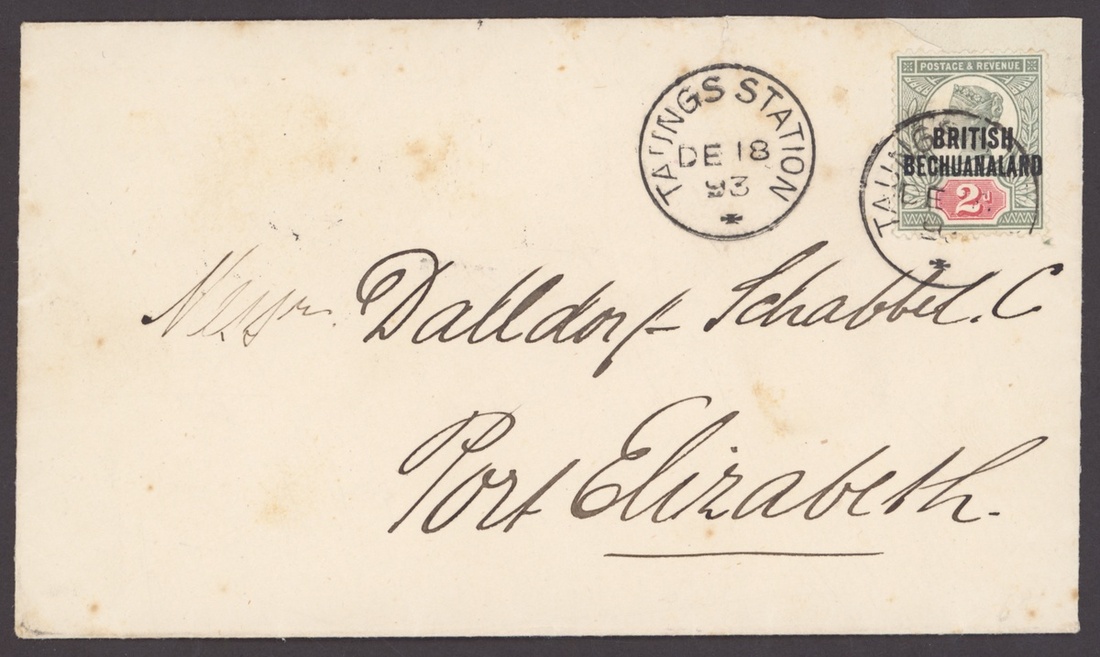 TAUNGS STATION
DE 18
93
POSTAGE & REVENUE
BRITISH
BECHUANALAND
2d
TAUNGS
DE
9
Messrs. Dalldorf Schabbel. C
Port Elizabeth.